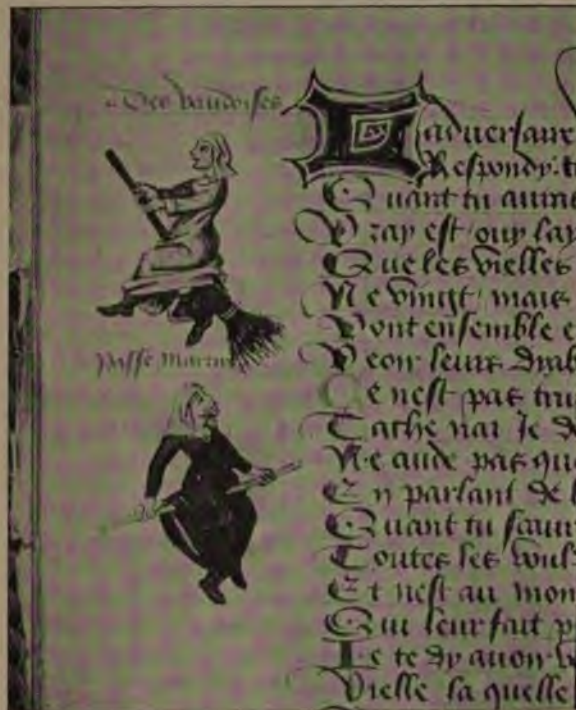 Des vaudoises
Passe Martin
Ladversaire
Respondy
Quant tu auras
Vray est ouy lay
Que les vielles
Ne vingt mais
Vont ensemble
Veoir leurs
Ce nest pas
Tache nai Je
Ne cude pas que
En parlant de
Quant tu
Toutes les
Et nest au mon
Qui leur fait p
Je te dy avoir
Vielle la quelle